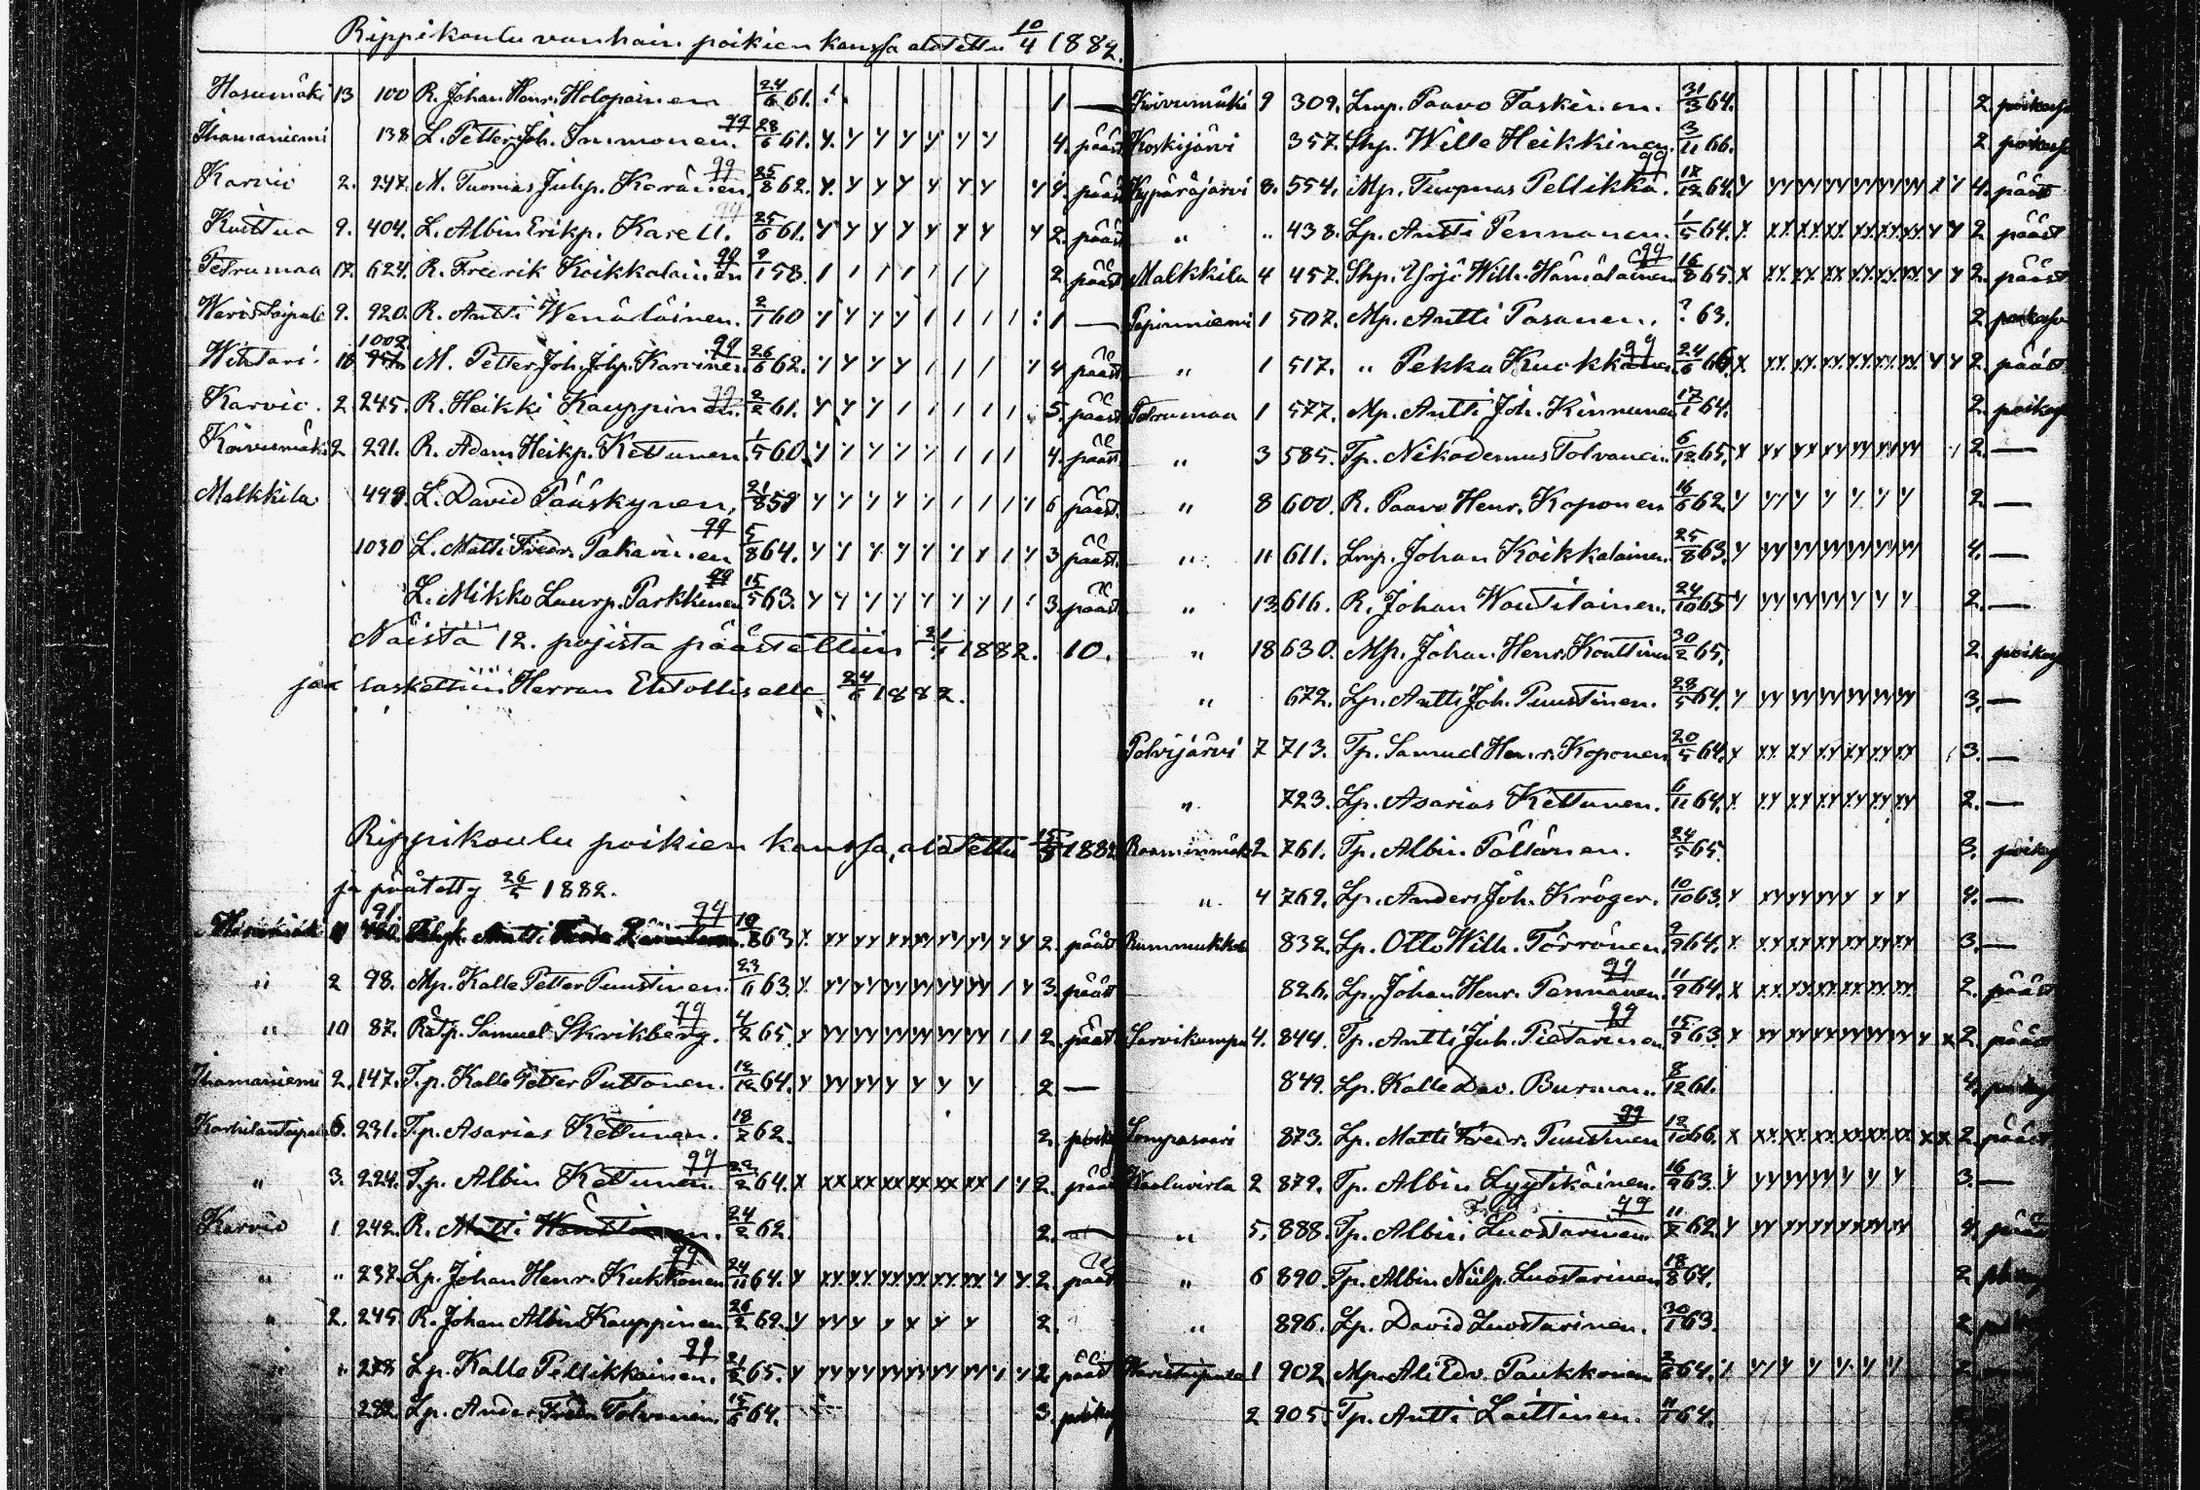 Rippikoulu vanhain poikien kanssa alotettu 10/4 1882.
Hasumäki 13 100 R. Johan Henr. Holopainen 24/6 61. 1 —
Ihamaniemi 138 L. Petter Joh. Immonen. 28/6 61. 4. pääst
Karvio 2. 247. M. Tuomas Juhp. Karänen 25/8 62. 4. pääst
9. 404. L. Albin Erikp. Karell. 25/6 61. 2. pääst
Petrumaa 17. 624. R. Fredrik Koikkalainen 9/1 58. 2. pääst
Waristaipale 9. 920. R. Antti Wenäläinen. 2/1 60 1 —
Wihtari. 18 1002 M. Petter Joh. Johp. Karvinen 26/6 62. 4 pääst
Karvio. 2 245. R. Heikki Kauppinen. 2/2 61. 5. pääst
Koivumäki 2 221. R. Adam Heikp. Kettunen. 1/5 60. 4. pääst
Malkkila 499. L. David Pääskynen, 21/8 59 6 pääst.
1030 L. Matti Fredr. Pakarinen 5/8 64. 3 pääst.
L. Mikko Laurp. Parkkinen 15/5 63. 3. pääst
Näistä 12. pojista päästettiin 1882. 10.
ja laskettiin Herran Ehtolliselle 24/6 1882.
Rippikoulu poikien kanssa, alotettu 15/5 1882
ja päätetty 26/5 1882.
91 99 19/8 63 2. pääst
" 2 98. Mp. Kalle Petter Puustinen. 23/6 63. 3. pääst
" 10 87. Rätp. Samuel Skrikberg. 4/2 65. 2. pääst
Ihamaniemi 2. 147. T.p. Kalle Petter Puttonen. 12/12 64. 2 —
Karhilantaipale 6. 231. T.p. Asarias Kettunen. 18/7 62. 2.
" 3. 224. T.p. Albin Kettunen. 23/2 64. 2. pääst
Karvio 1 242. R. Matti Wäntinen. 24/2 62. 2. —
" " 237. Lp. Johan Henr. Kukkonen 24/11 64. 2. pääst
" 2. 245 R. Johan Albin Kauppinen 26/2 62. 2.
" " 278 Lp. Kalle Pellikkainen. 21/2 65. 2 pääst
282. Lp. Ander Fredr. Tolvanen 15/6 64. 3.
Koivumäki 9 309. Lmp. Paavo Taskinen. 31/3 64. 2.
Koskijärvi 357. Shp. Wille Heikkinen. 3/11 66. 2.
Kypäräjärvi 8. 554. Mp. Tuomas Pellikka. 18/12 64. 4. pääst
" " 438. Lp. Antti Pennanen. 1/5 64. 2 pääst
Malkkila 4 457. Shp. Yrjö Wilh. Hämäläinen 16/8 65. 2. pääst
Papinniemi 1 507. Mp. Antti Pasanen. ? 63. 2
" 1 517. " Pekka Kuokkanen. 24/6 66. 2. pääst
Petrumaa 1 577. Mp. Antti Joh. Kinnunen 17/1 64. 2.
" 3 585. Tp. Nikodemus Tolvanen. 6/12 65. 2. —
" 8 600. R. Paavo Henr. Koponen 16/6 62. 2 —
" 11 611. Lmp. Johan Koikkalainen. 25/8 63. 4. —
" 13. 616. R. Johan Woutilainen. 24/10 65 2. —
" 18 630. Mp. Johan Henr. Konttinen 30/2 65. 2.
" 672. Lp. Antti Joh. Puustinen. 28/5 64. 3. —
Polvijärvi 7 713. Tp. Samuel Henr. Koponen 20/5 64. 3. —
" 723. Lp. Asarias Kettunen. 6/11 64. 2. —
2 761. Tp. Albin Pöllänen. 24/5 65. 3.
" 4 769. Lp. Anders Joh. Kröger. 10/10 63. 4. —
Rummukka 832. Lp. Otto Wilh. Törrönen. 9/9 64. 3. —
826. Lp. Johan Henr. Pennanen. 11/2 64. 2. pääst
Sarvikumpu 4. 844. Tp. Antti Juh. Pietarinen 15/9 63. 2. pääst
849. Lp. Kalle Dav. Burman. 8/12 61. 4.
Lompasaari 873. Lp. Matti Fredr. Puustinen 12/10 66. 2. pääst
2 879. Tp. Albin Lyytikäinen. 16/9 63. 3. —
" 5. 888. Tp. Albin Luostarinen 11/7 62. 4. pääst
" 6 890. Tp. Albin Niilp. Luostarinen 18/8 64. 2
" 896. Lp. David Luostarinen. 30/1 63. 2
Waristaipale 1 902 Mp. Ali Edv. Paukkonen 64. 2 —
2 905. Tp. Antti Laittinen. 11/1 64.